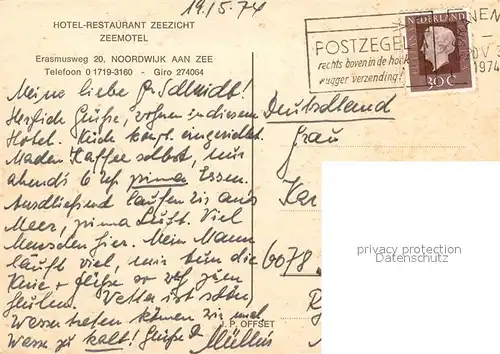 19/5.74
HOTEL-RESTAURANT ZEEZICHT
ZEEMOTEL
Erasmusweg 20, NOORDWIJK AAN ZEE
Telefoon 0 1719-3160 - Giro 274064
POSTZEGEL
rechts boven in de hoek
vlugger verzending!
NEDERLAND
30 C
1974
Meine liebe Fr. Schmidt!
Herzlich Grüße, wohnen in diesem
Hotel. Küch kompl. eingerichtet.
Machen Kaffee selbst, nur
abends 6 Uhr prima Essen.
Anschließend laufen wir ans
Meer, prima Luft. Viel
Menschen hier. Mein Mann
läuft viel, nur tun die
Knie + Füße weh zum
Heulen. Wetter ist schön,
Wasser treten können wir und
Wasser zu kalt! Grüße
Müllers
Deutschland
Frau
Kar
6078
J. P. OFFSET
privacy protection
www.oldthing.com